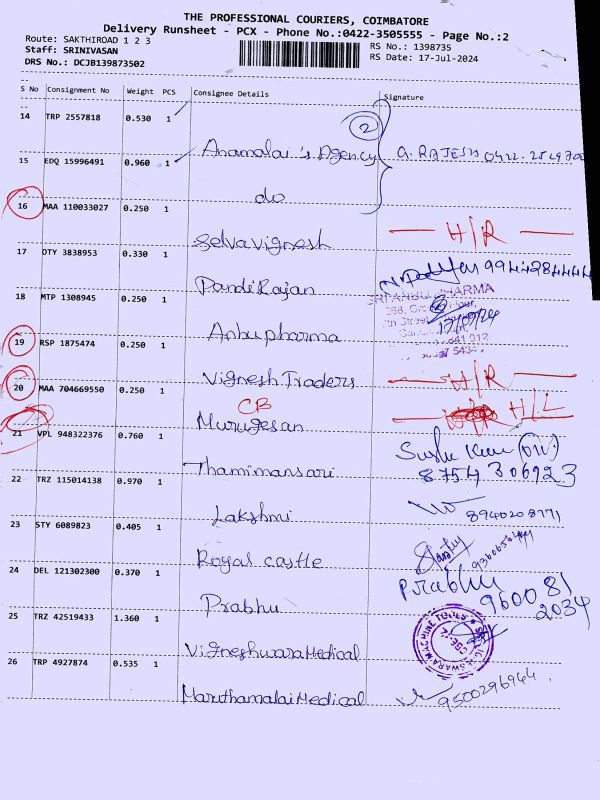 THE PROFESSIONAL COURIERS, COIMBATORE
Delivery Runsheet - PCX - Phone No.:0422-3505555 - Page No.:2
Route: SAKTHIROAD 1 2 3
RS No.: 1398735
Staff: SRINIVASAN
RS Date: 17-Jul-2024
DRS No.: DCJB139873502
S No Consignment No Weight PCS Consignee Details Signature
2
14 TRP 2557818 0.530 1
Anamalai's Agency G. RAJESH 0422
15 EDQ 15996491 0.960 1
do
16 MAA 110033027 0.250 1
Selvavignesh H/R
17 OTY 3838953 0.330 1
PandiRajan 9944284444
18 MTP 1308945 0.250 1
Anbupharma SRI ANBU PHARMA
19 RSP 1875474 0.250 1
Vignesh Traders H/R
20 MAA 704669550 0.250 1
CB
Murugesan H/L
21 VPL 948322376 0.760 1
Thamimansari 8754306923
22 TRZ 115014138 0.970 1
Lakshmi 8940208771
23 STY 6089823 0.405 1
Royal castle
24 DEL 121302300 0.370 1
Prabhu Prabhu 96008 1
2034
25 TRZ 42519433 1.360 1
Vigneshwara Medical
26 TRP 4927874 0.535 1
Maruthamalai Medical 9500296944